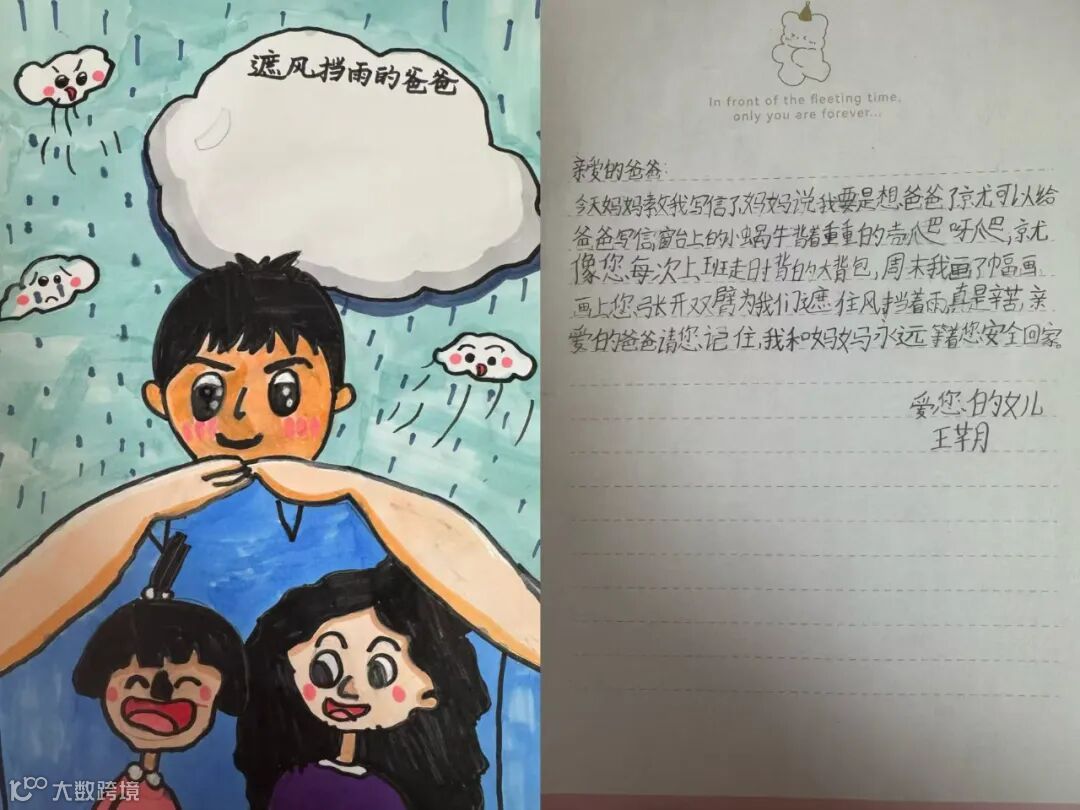 遮风挡雨的爸爸
In front of the fleeting time,
only you are forever...
亲爱的爸爸:
今天妈妈教我写信了,妈妈说我要是想爸爸了就可以给
爸爸写信,窗台上的小蜗牛背着重重的壳爬呀爬,就
像您每次上班走时背的大背包,周末我画了幅画。
画上您张开双臂为我们遮住风挡着雨,真是辛苦,亲
爱的爸爸请您记住,我和妈妈永远等着您安全回家。
爱您的女儿
王芊月
大数跨境